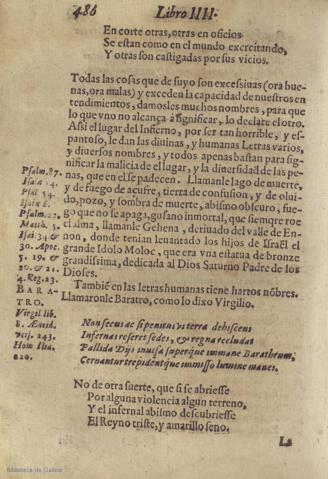 486 Libro IIII.
En corte otras, otras en oficios.
Se estan como en el mundo exercitando,
Y otras son castigadas por sus vicios.
Todas las cosas que de suyo son excessiuas (ora bue-
nas, ora malas) y exceden la capacidad de nuestros en
tendimientos, damosles muchos nombres, para que
lo que vno no alcança à significar, lo declare el otro.
Assi el lugar del Infierno, por ser tan horrible, y es-
pantoso, le dan las diuinas, y humanas Letras varios,
y diuersos nombres, y todos apenas bastan para sig-
nificar la malicia de el lugar, y la diuersidad de las pe-
nas, que en el se padecen. Llamanle lago de muerte,
y de fuego de açufre, tierra de confusion, y de olui-
do, pozo, y sombra de muerte, abismo obscuro, fue-
go que no se apaga, gusano inmortal, que siempre roe
el alma, llamanle Gehena, deriuado del valle de En-
non, donde tenian leuantado los hijos de Israël el
grande Idolo Moloc, que era vna estatua de bronze
grandissima, dedicada al Dios Saturno Padre de los
Dioses.
Psalm. 87.
Isaiæ 14.
Psal. 54.
Isaiæ 6.
Psalm. 22.
Matth. 5.
Isai. 34. &
30. Apoc.
5. 19. &
20. & 21.
4. Reg. 23.
BARA-
TRO.
Virgil. lib.
8. Æneid.
vers. 243.
820.
Tambiē en las letras humanas tiene hartos nōbres.
Llamaronle Baratro, como lo dixo Virgilio.
Non secus ac si penitus vi terra dehiscens
Infernas reseret sedes, & regna recludat
Pallida Dijs inuisa superque immane Barathrum,
Cernatur trepidentque immisso lumine manes.
No de otra suerte, que si se abriesse
Por alguna violencia algun terreno,
Y el infernal abismo descubriesse
El Reyno triste, y amarillo seno.
La
Biblioteca de Galicia